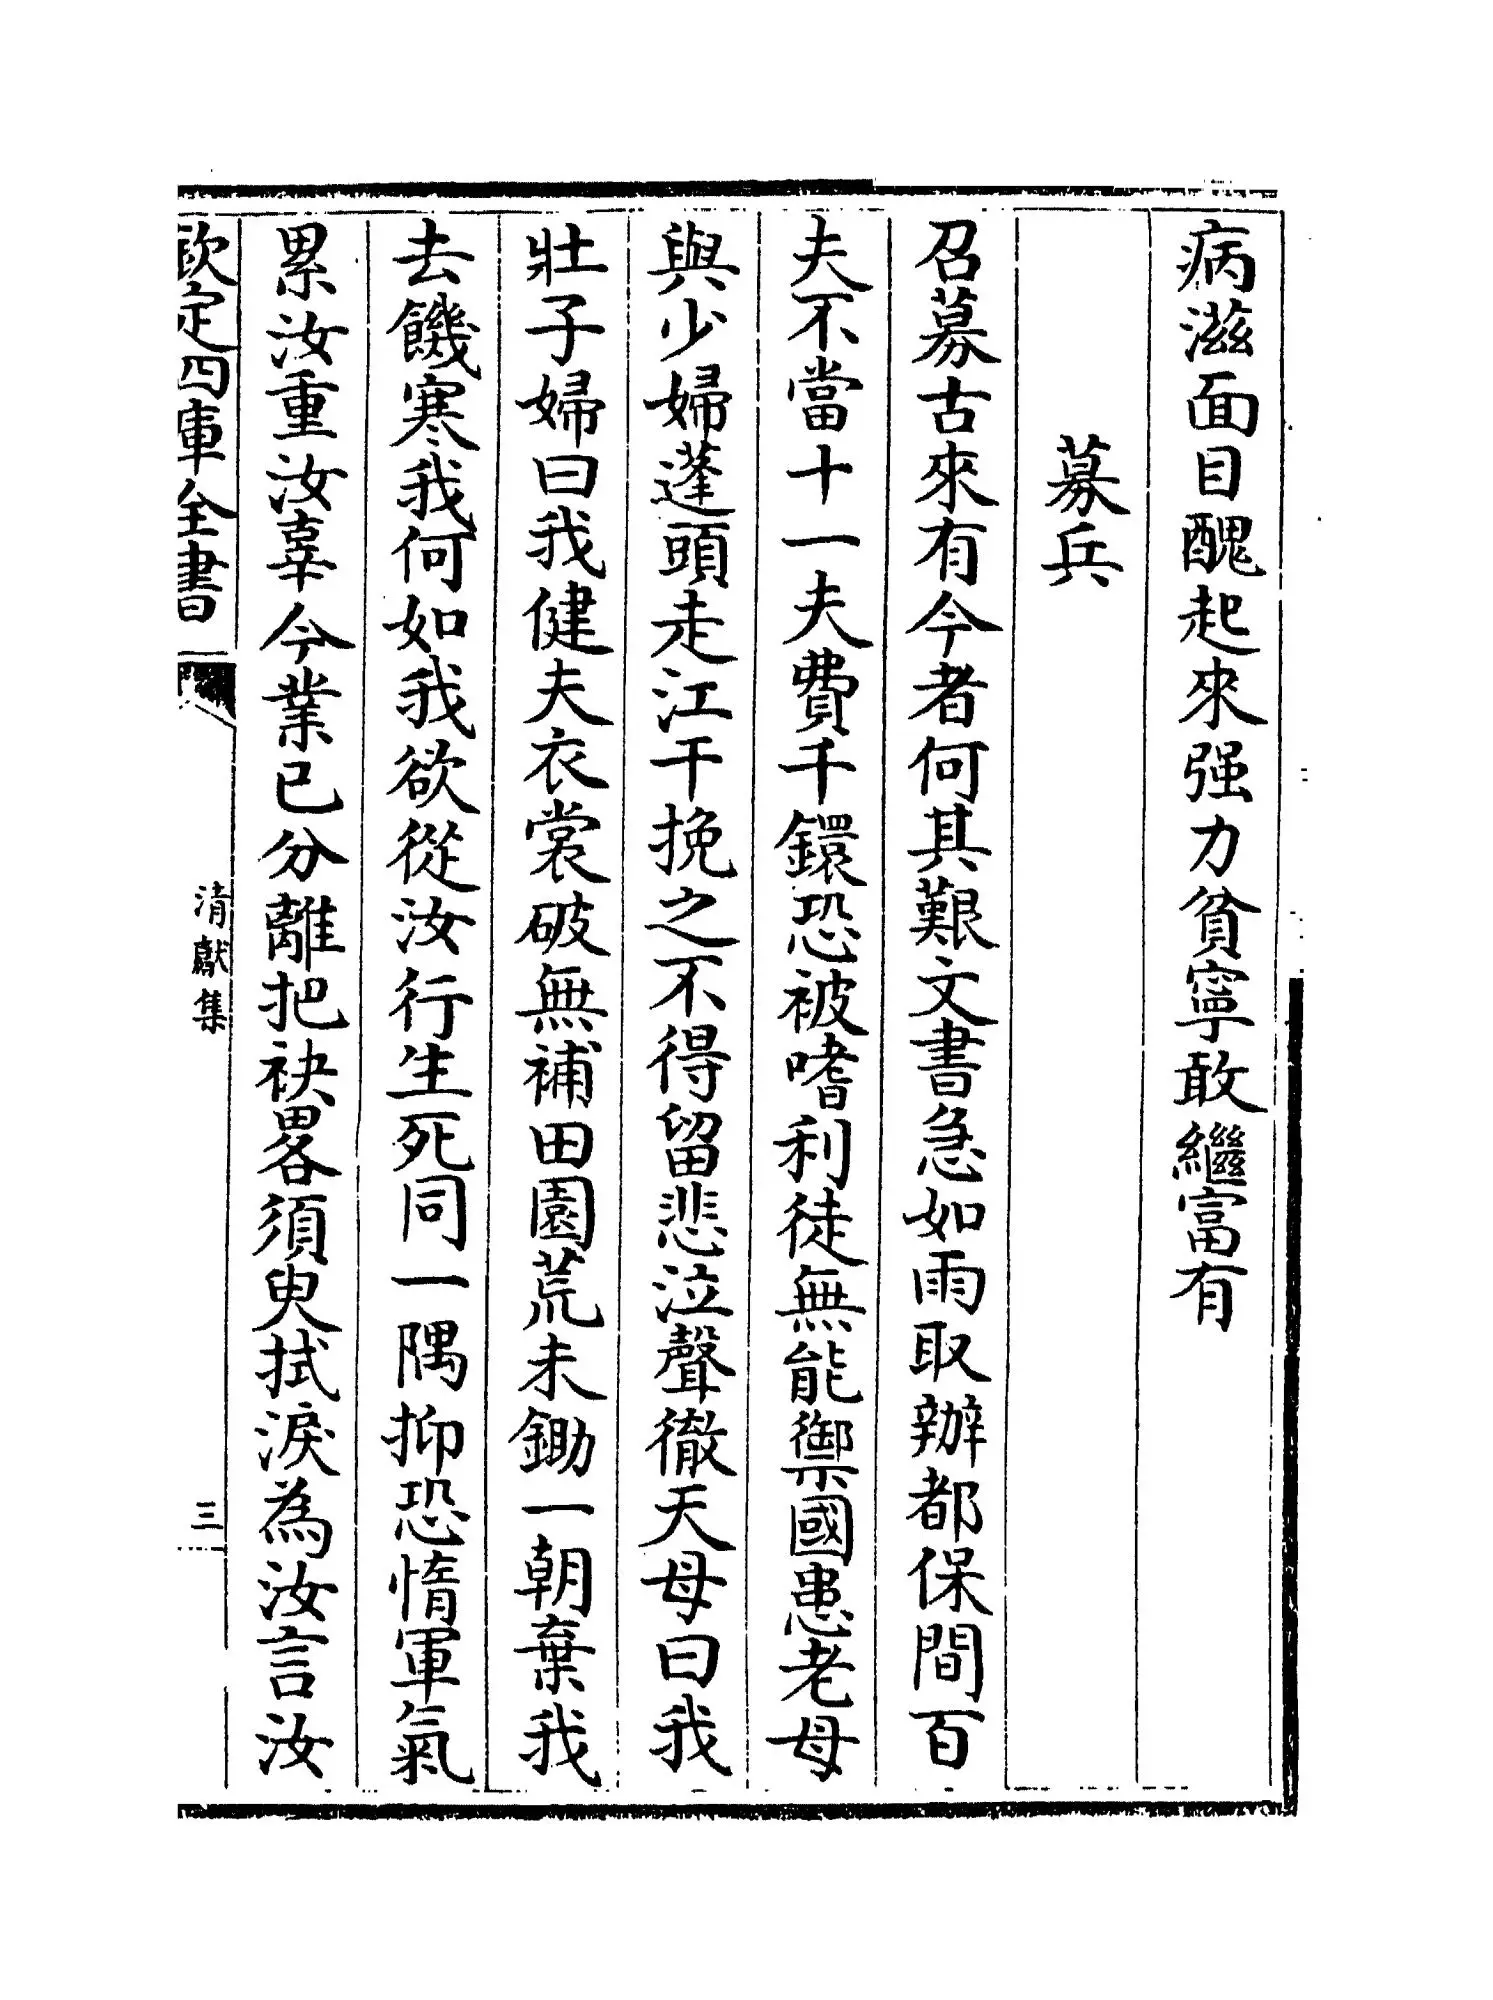 病滋面目醜起來强力貧寧敢繼富有
募兵
召募古來有今者何其艱文書急如雨取辦都保間百
夫不當十一夫費千鐶恐被嗜利徒無能禦國患老母
與少婦蓬頭走江干挽之不得留悲泣聲徹天母曰我
壯子婦曰我健夫衣裳破無補田園荒未鋤一朝棄我
去饑寒我何如我欲從汝行生死同一隅抑恐惰軍氣
累汝重汝辜今業已分離把袂畧須臾拭淚為汝言汝
欽定四庫全書
清獻集
三